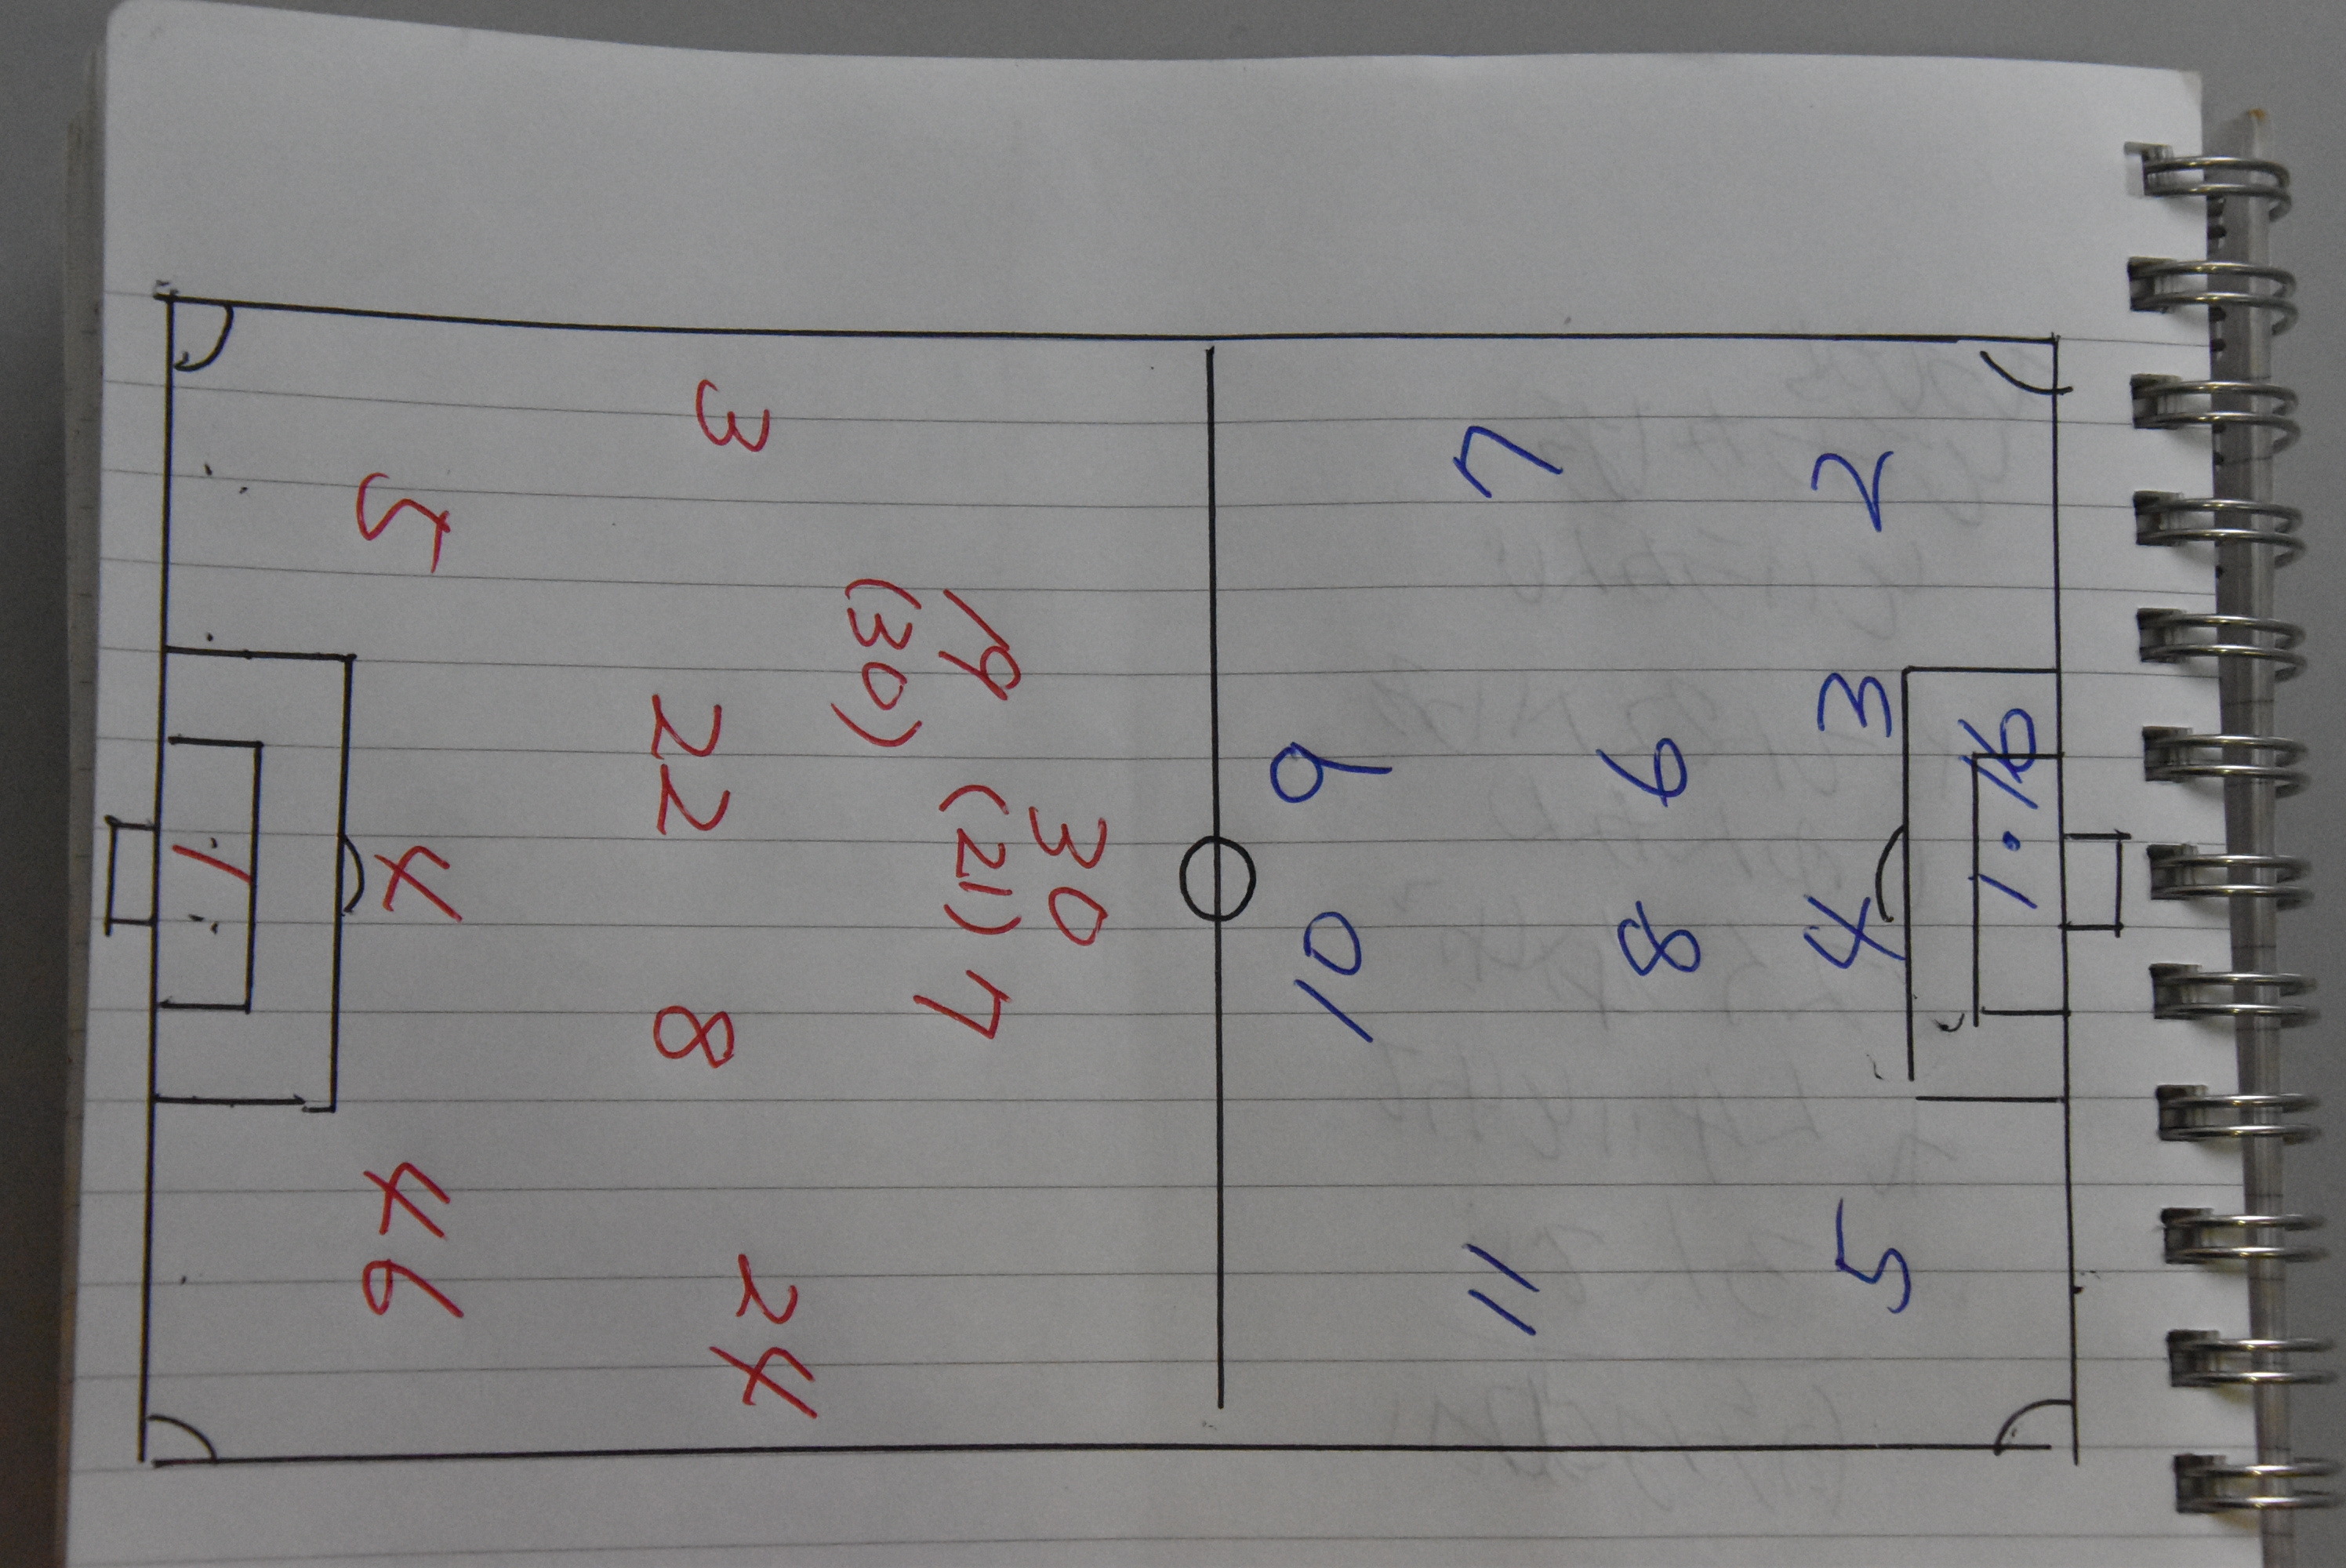 30
19 (21) 7
(30)
3 24
22 8
5 4 46
1
10 9
11 7
8 6
5 4 3 2
1·16